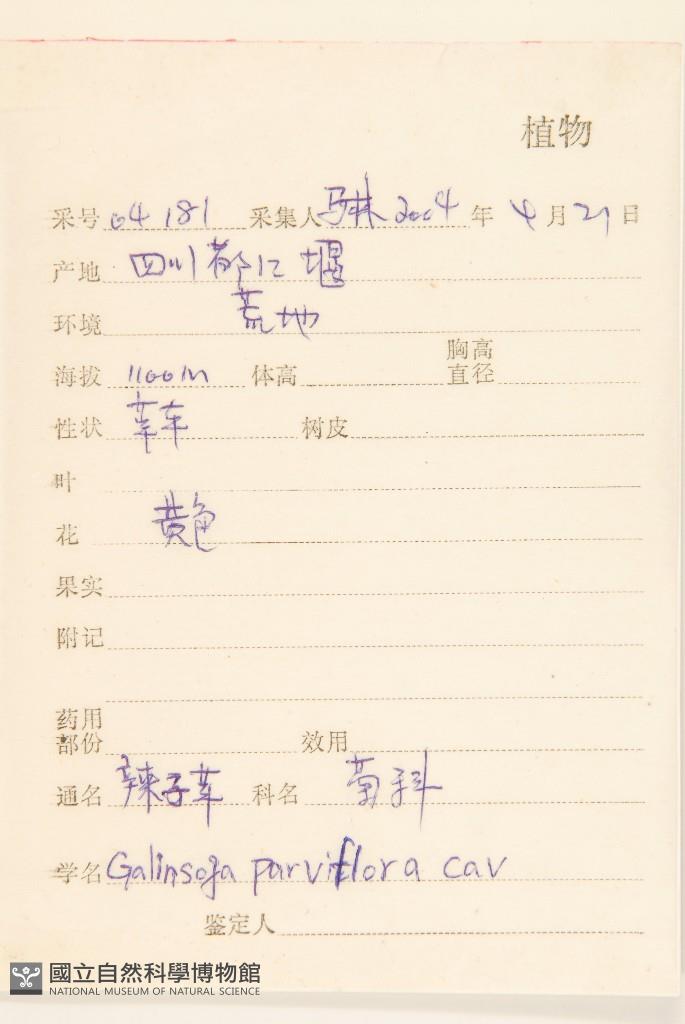 植物
采号 04 181 采集人 马林 2004 年 4 月 21 日
产地 四川都江堰
环境 荒地
海拔 1100m 体高 胸高直径
性状 草本
树皮
叶
花 黄色
果实
附记
药用部份 效用
通名 辣子草 科名 菊科
学名 Galinsoga parviflora cav
鉴定人
國立自然科學博物館
NATIONAL MUSEUM OF NATURAL SCIENCE